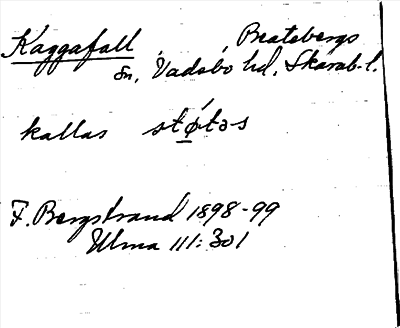 Kaggafall, Beatebergs
sn, Vadsbo hd, Skarab.l.
kallas støtəs
F. Bergstrand 1898-99
Ulma 111:301